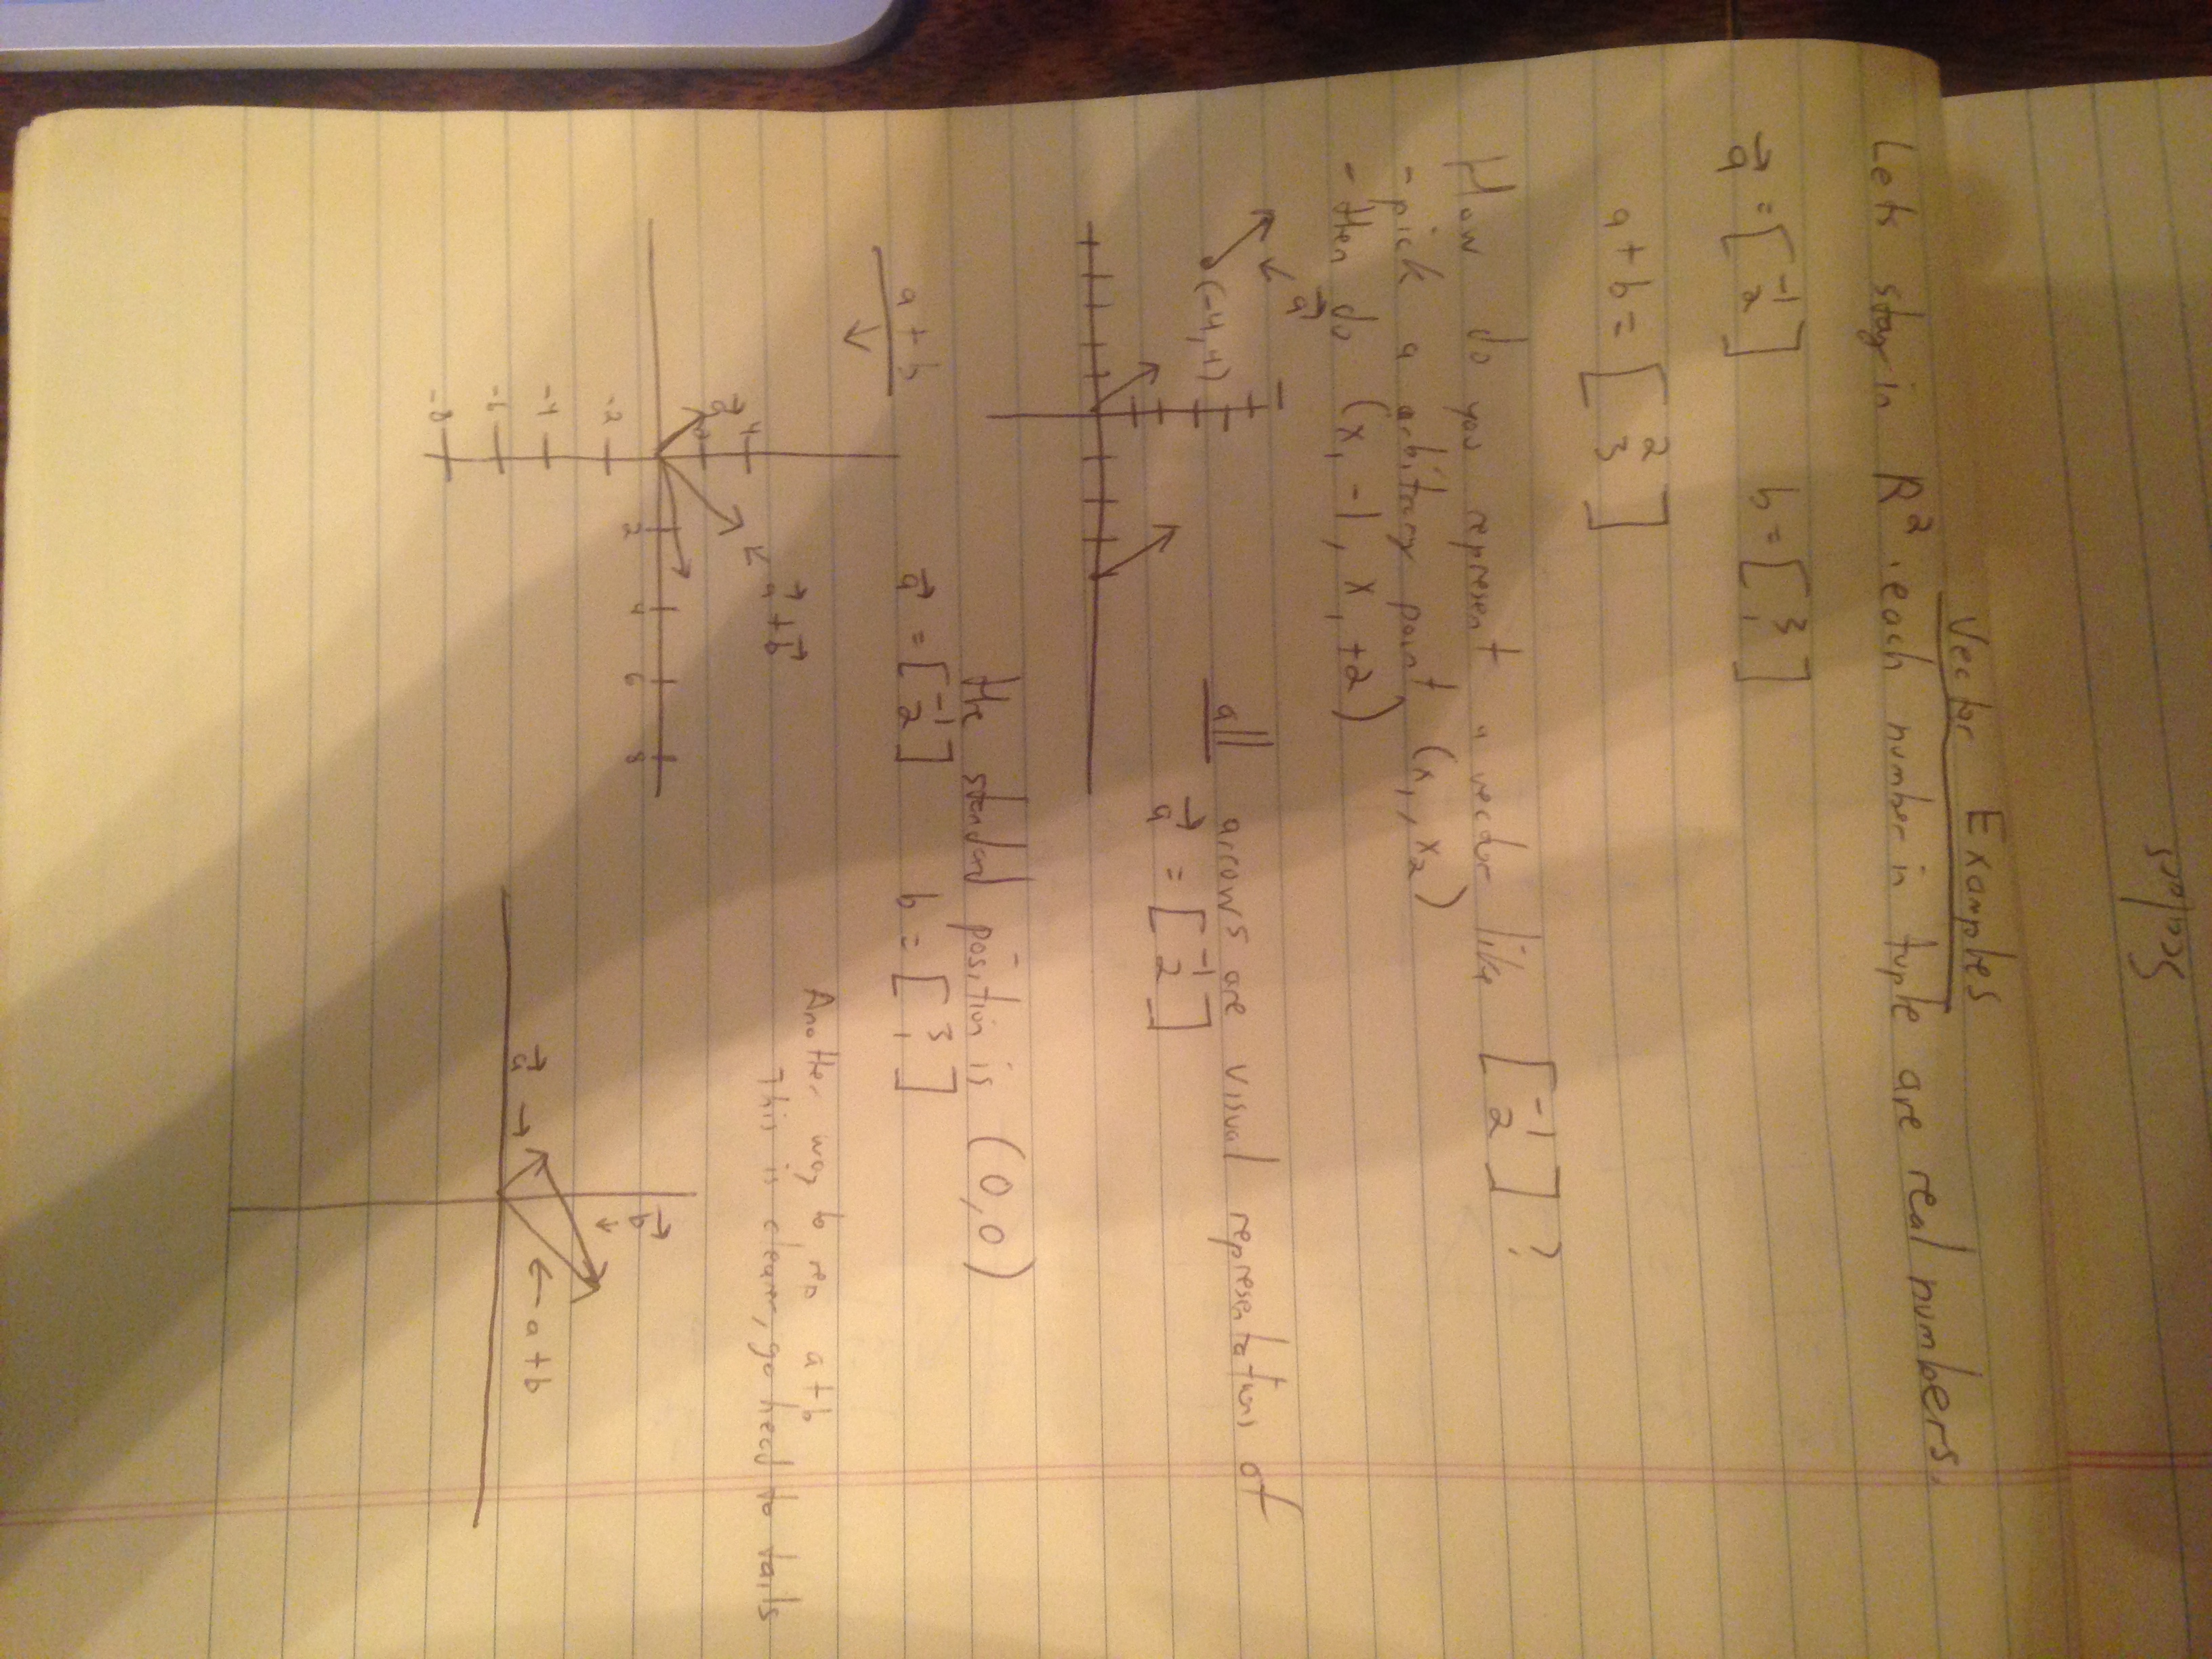 Scalars
Vector Examples
Lets stay in R², each number in tuple are real numbers.
a⃗ = [-1 2] b = [3 1]
a + b = [2 3]
How do you represent a vector like [-1 2]?
- pick a arbitrary point (x₁, x₂)
- then do (x₁ -1, x₁ +2)
a⃗
(-4,4)
all arrows are visual representations of
a⃗ = [-1 2]
the standard position is (0,0)
a + b
a⃗ = [-1 2] b = [3 1]
Another way to rep a + b
This is clearer, go head to tails
a⃗ + b⃗
4
a⃗
2 4 6 8
-2
-4
-6
-8
b⃗
a + b
a⃗